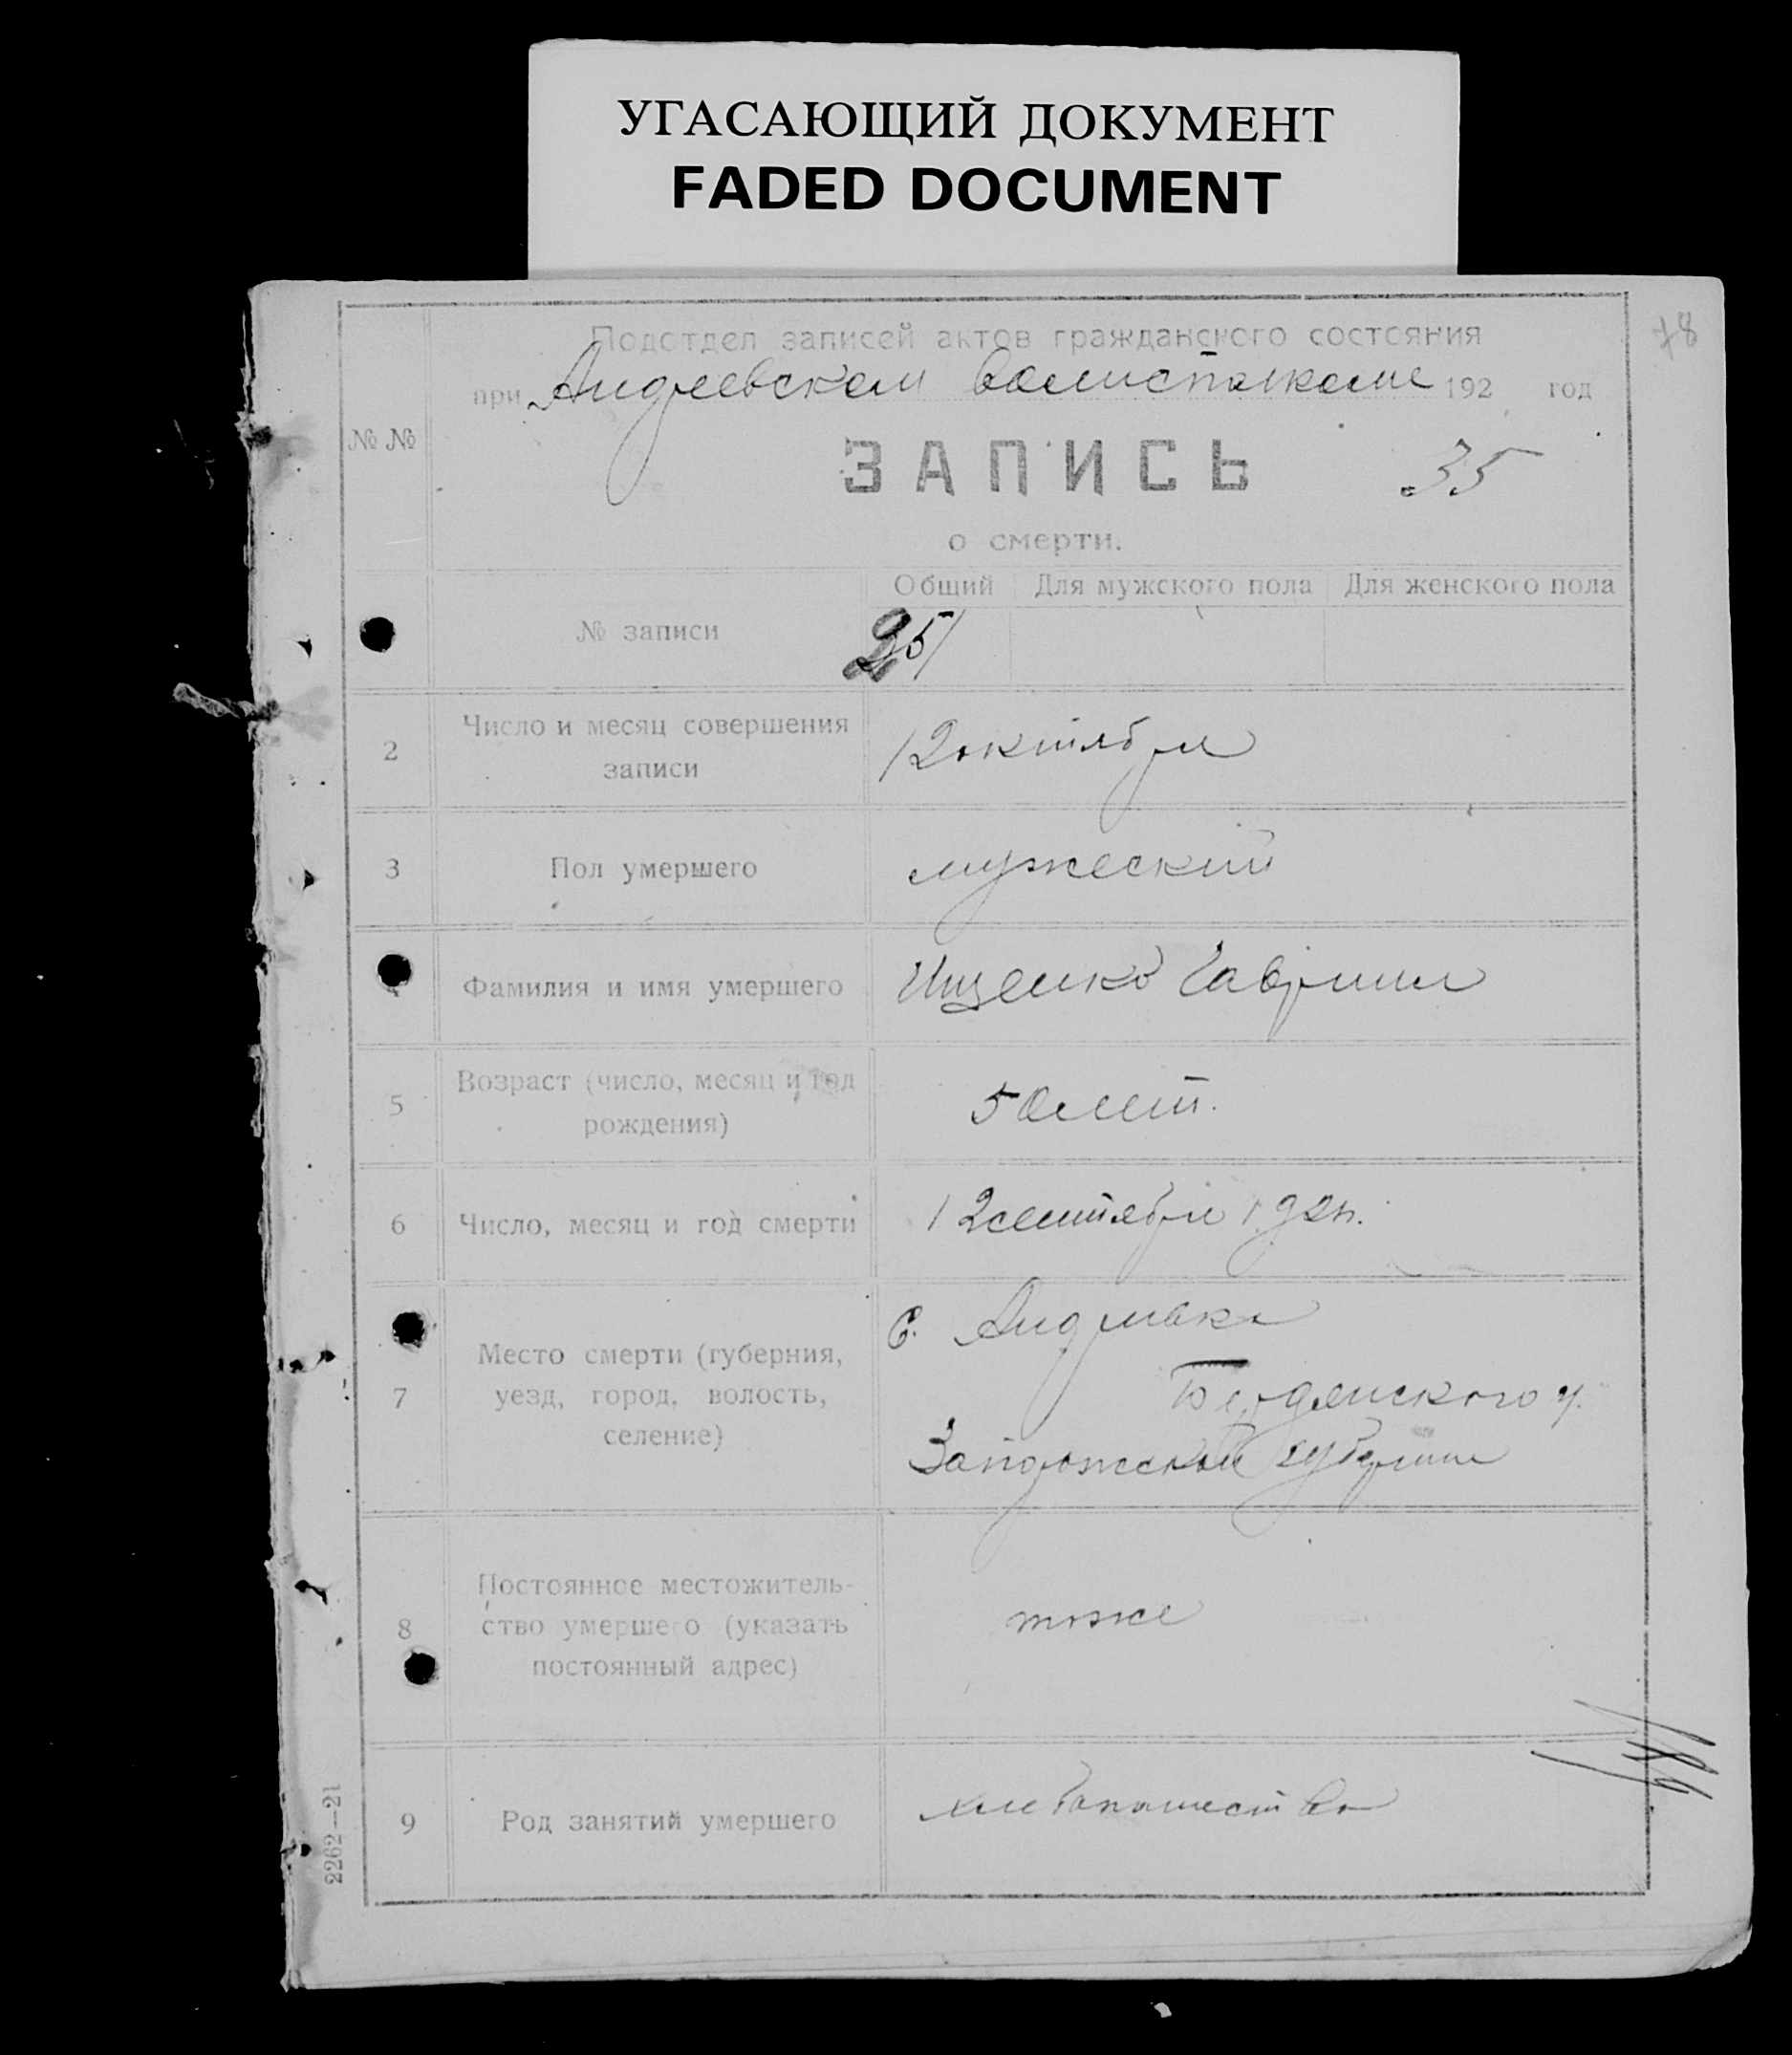 УГАСАЮЩИЙ ДОКУМЕНТ
FADED DOCUMENT
78
Подотдел записей актов гражданского состояния
при Андреевском Волисполкоме 192 год
№ №
ЗАПИСЬ 35
о смерти.
Общий Для мужского пола Для женского пола
№ записи
2 Число и месяц совершения
записи
12 октября
3 Пол умершего мужеский
Фамилия и имя умершего Ищенко Гавриил
5 Возраст (число, месяц и год
рождения)
50 лет.
6 Число, месяц и год смерти 12 сентября
7 Место смерти (губерния,
уезд, город, волость,
селение)
с. Андреевка
Бердянского у.
Запорожской губернии
8 Постоянное местожитель-
ство умершего (указать
постоянный адрес)
тоже
9 Род занятий умершего хлебопашество
2262—21